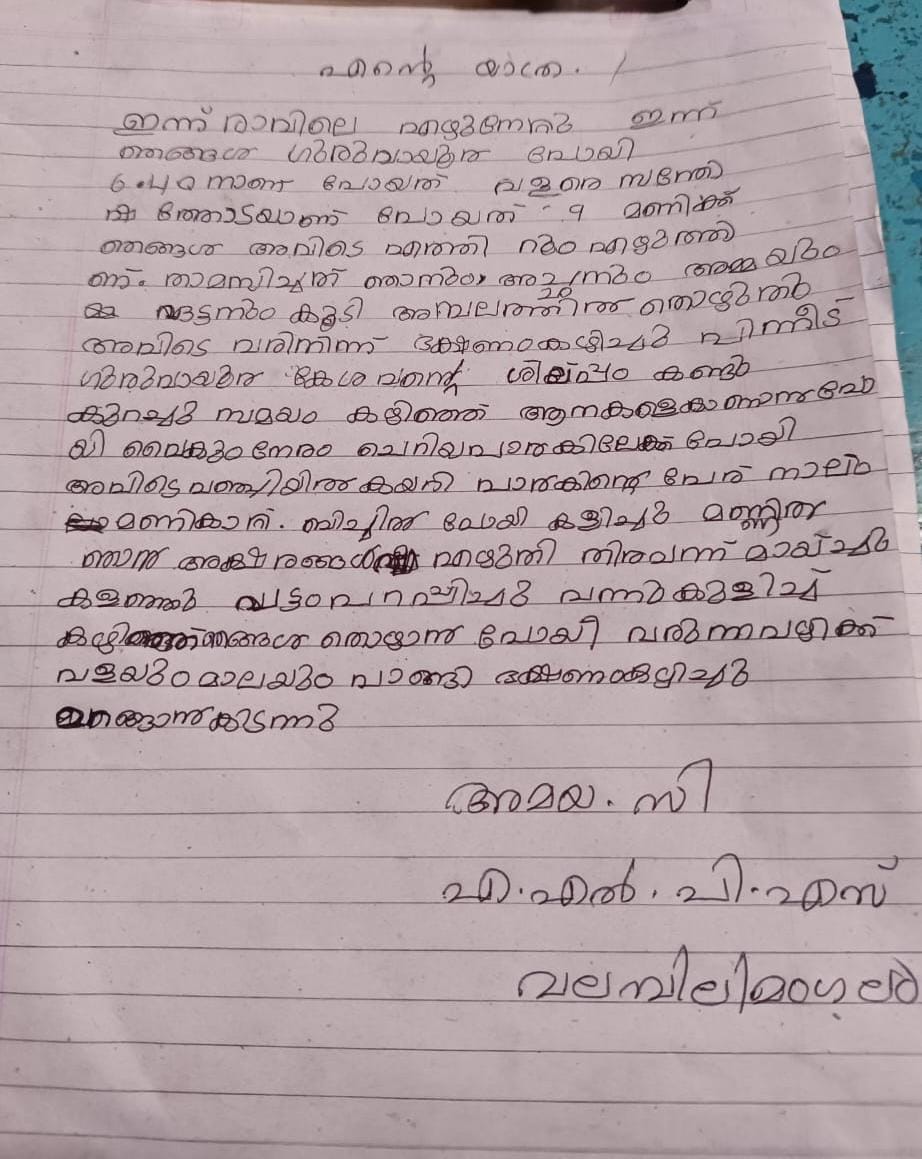 എന്റെ യാത്ര.
ഇന്ന് രാവിലെ എഴുന്നേറ്റു ഇന്ന്
ഞങ്ങൾ ഗുരുവായൂർ പോയി
6.40 നാണ് പോയത് വളരെ സന്തോ
ഷ ത്തോടെയാണ് പോയത് 9 മണിക്ക്
ഞങ്ങൾ അവിടെ എത്തി
താമസിച്ചത് ഞാനും, അച്ഛനും അമ്മയും
ഏട്ടനും കൂടി അമ്പലത്തിൽ തൊഴുതു
അവിടെ വരിനിന്ന് ഭക്ഷണംകഴിച്ചു പിന്നീട്
ഗുരുവായൂർ കേശവന്റെ ശില്പം കണ്ടു
കുറച്ചു സമയം കഴിഞ്ഞ് ആനകളെകാണാൻപോ
യി വൈകുംനേരം ചെറിയപാർകിലേക്ക് പോയി
അവിടെ വഞ്ചിയിൽകയറി പാർകിന്റെ പേര്
മണികാട്. ബീച്ചിൽ പോയി കളിച്ചു മണ്ണിൽ
ഞാൻ അക്ഷരങ്ങൾ എഴുതി തിരവന്ന് മായ്ച്ചു
കളഞ്ഞു പട്ടംപറപ്പിച്ചു വന്നുകുളിച്ച്
കഴിഞ്ഞ്ഞങ്ങൾ തൊഴാൻ പോയി വരുന്നവഴിക്ക്
വളയുംമാലയും വാങ്ങി ഭക്ഷണംകഴിച്ചു
ഉറങ്ങാൻകിടന്നു
അമയ. സി
എ.എൽ.പി.എസ്
വലമ്പിലിമംഗലം